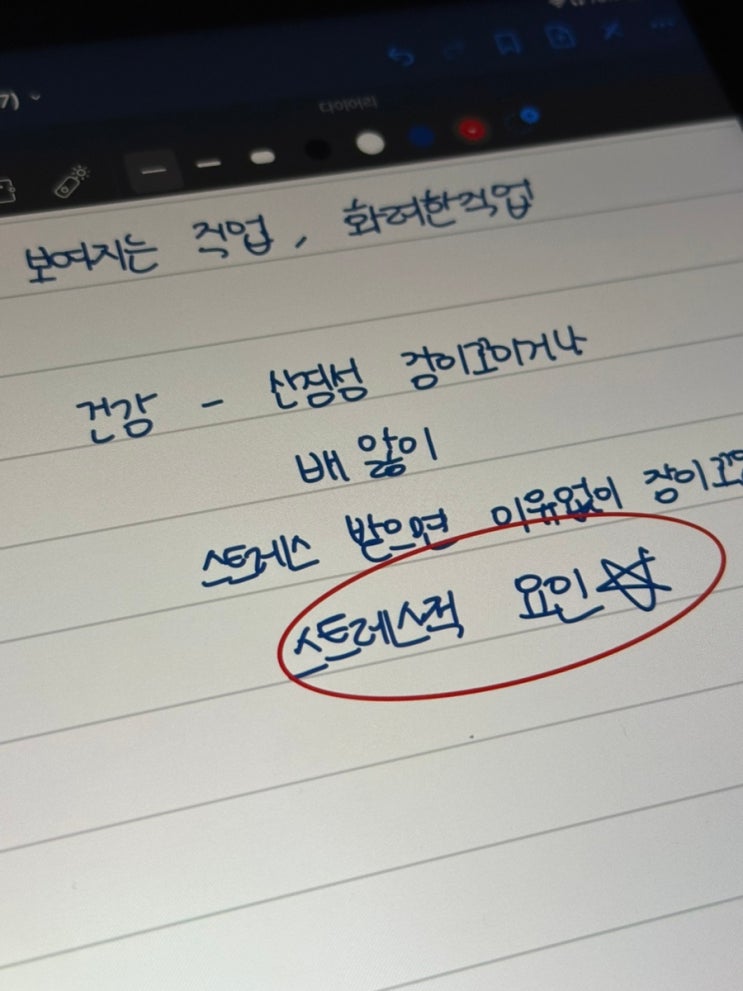 7)
보여지는 직업, 화려한직업
건강 - 신경성 장이꼬이거나
배 앓이
스트레스 받으면 이유없이 장이꼬
스트레스적 요인☆